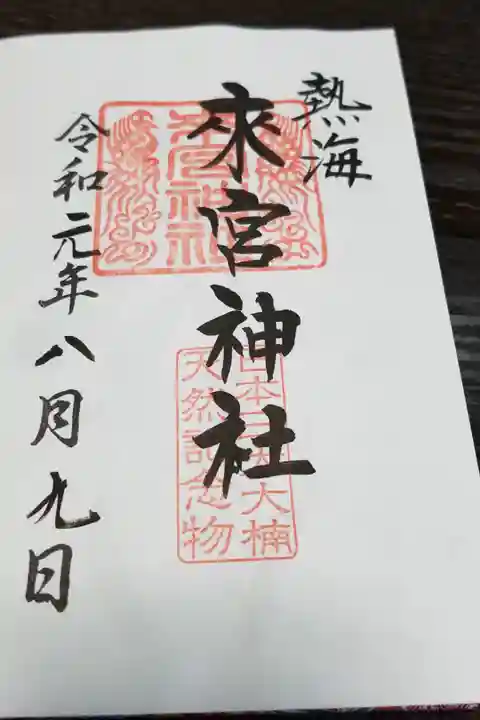 熱海
來宮神社
來宮神社
日本三大楠
天然記念物
令和元年八月九日